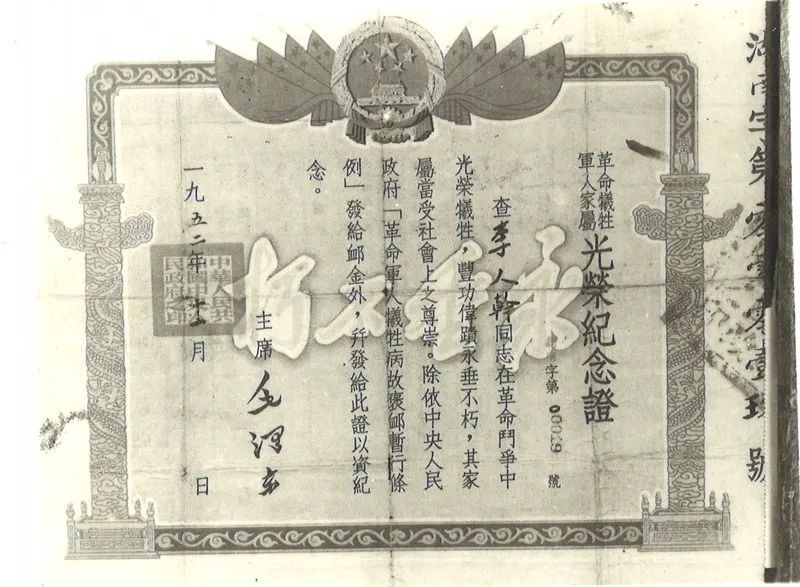 湖南字第零零壹玖號
革命犧牲
軍人家屬
光榮紀念證
字第00019號
查李人幹同志在革命鬥爭中
光榮犧牲，豐功偉蹟永垂不朽，其家
屬當受社會上之尊崇。除依中央人民
政府「革命軍人犧牲病故褒卹暫行條
例」發給卹金外，幷發給此證以資紀
念。
永垂不朽
主席 毛澤東
一九五二年十二月 日
中華人民共
和國中央人
民政府之印